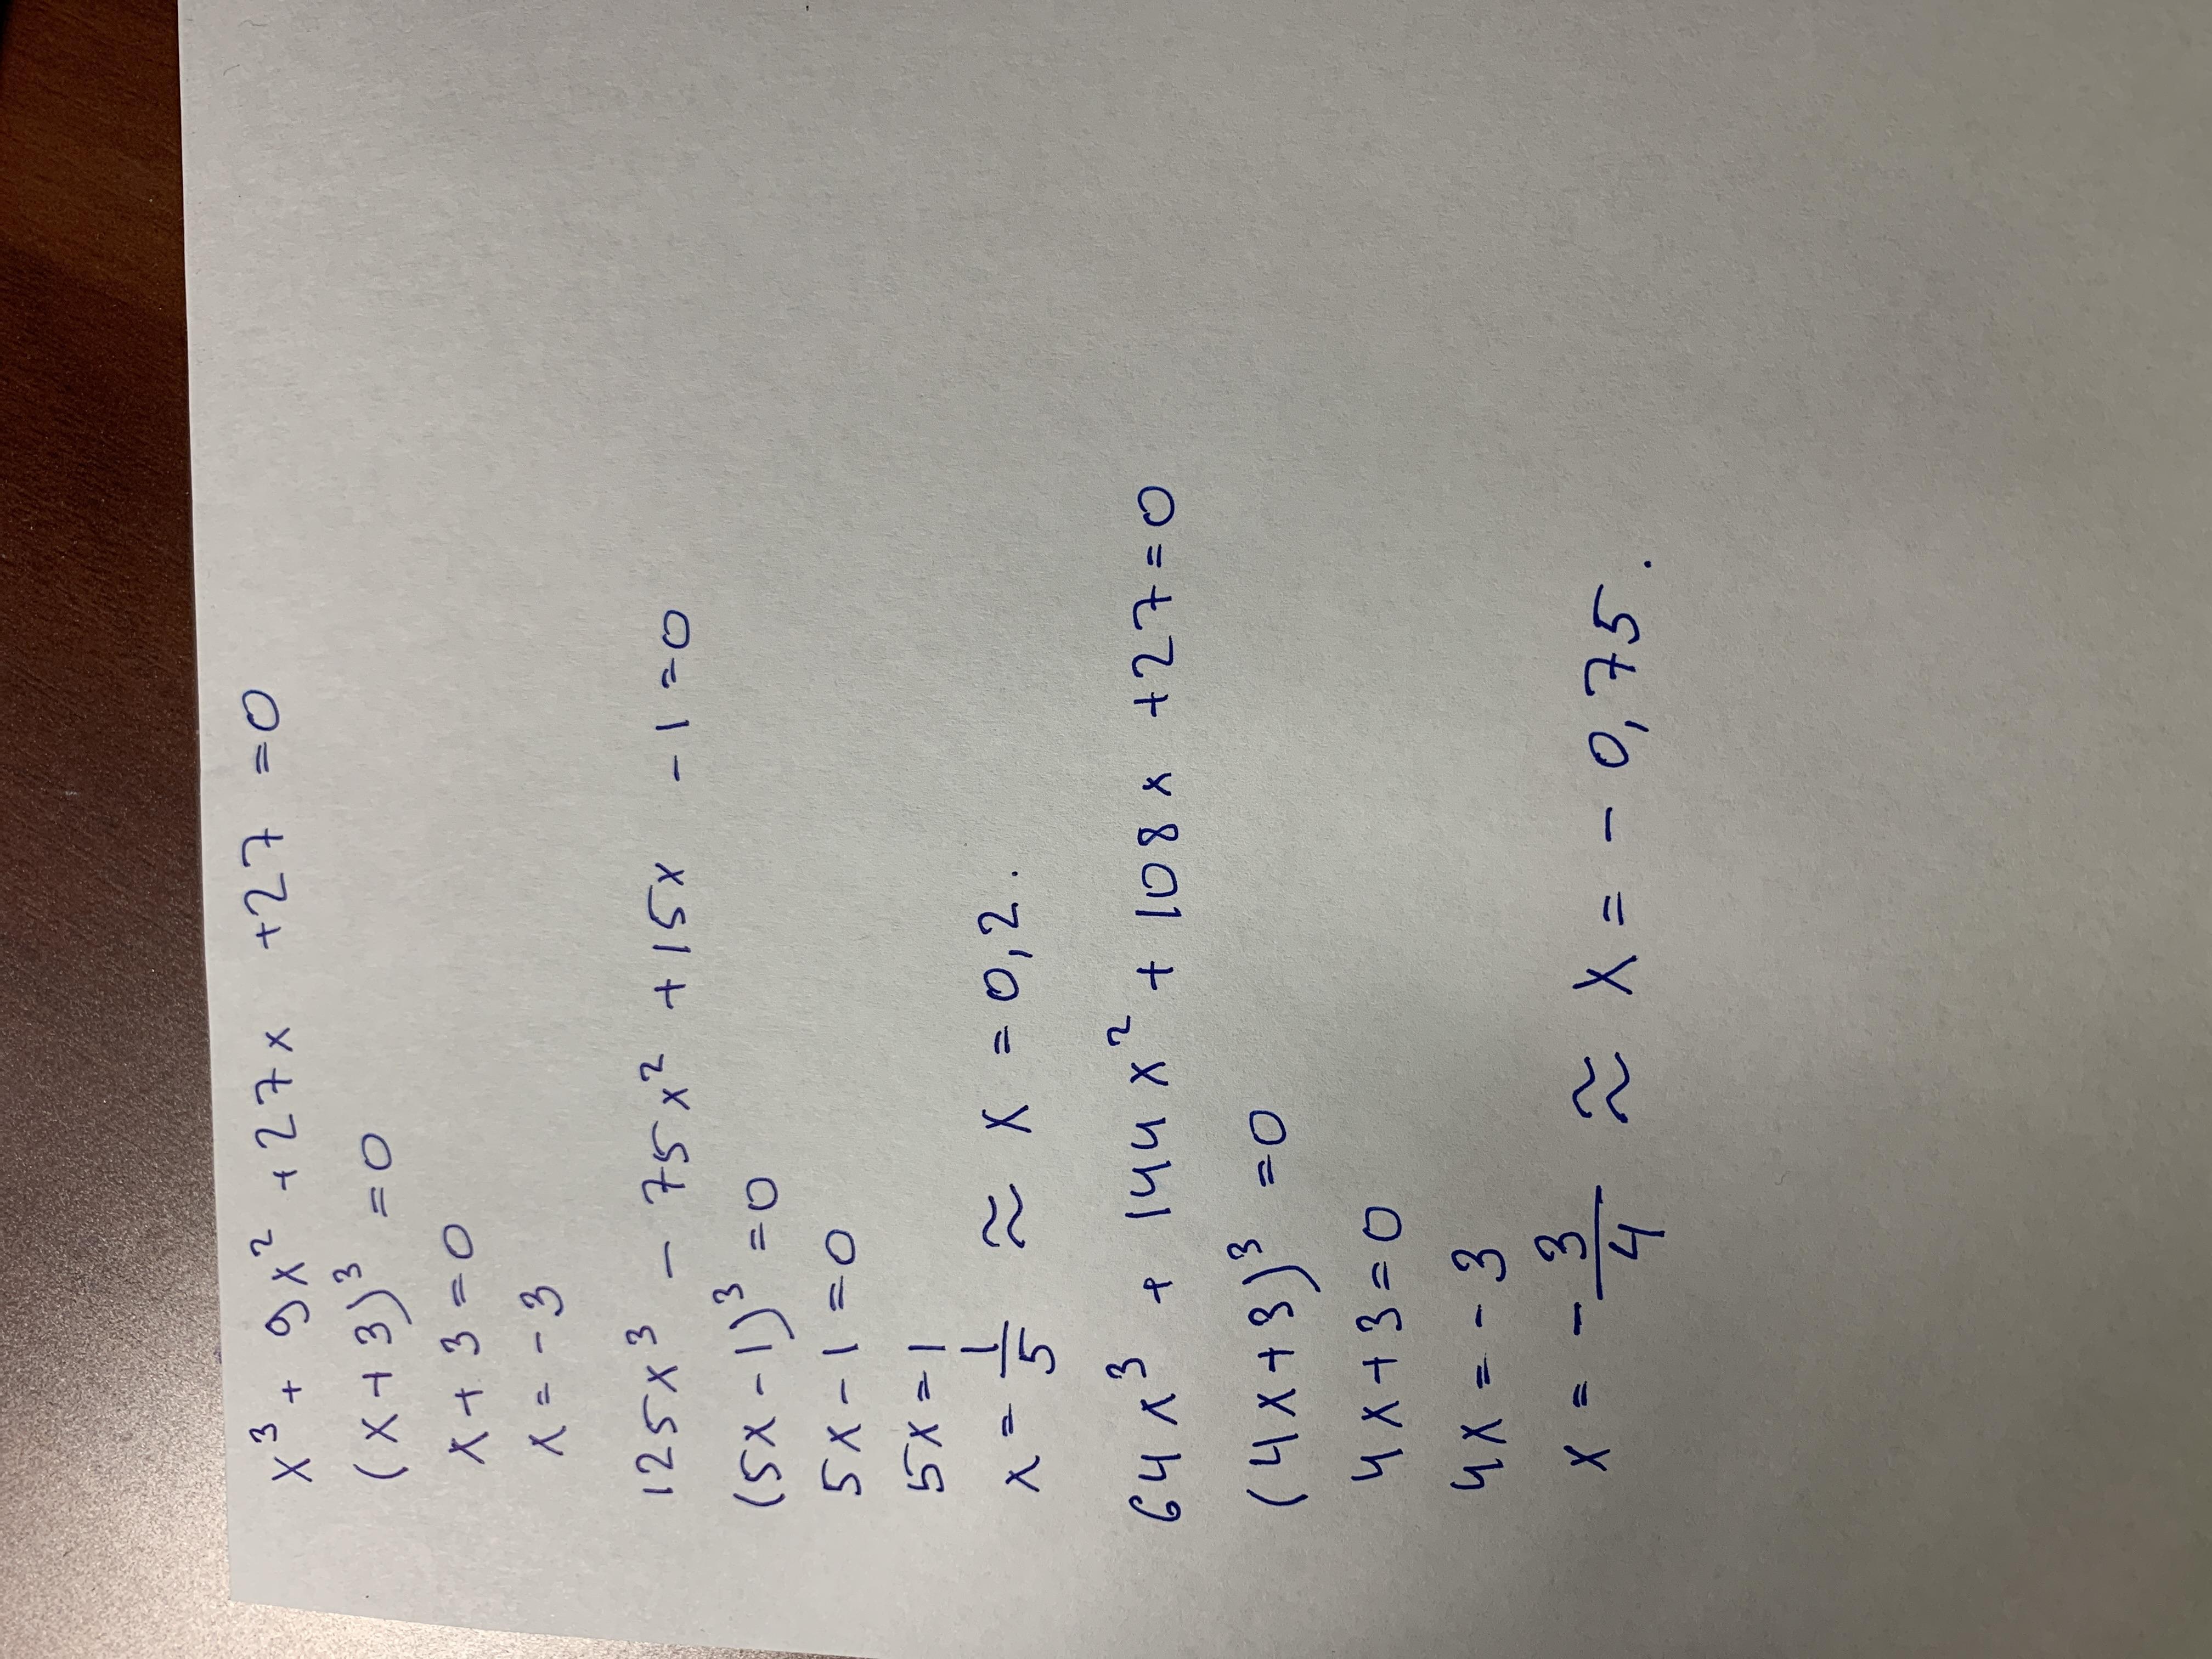 x³ + 9x² + 27x + 27 = 0
(x + 3)³ = 0
x + 3 = 0
x = - 3
125x³ - 75x² + 15x - 1 = 0
(5x - 1)³ = 0
5x - 1 = 0
5x = 1
x = 1/5 ≈ x = 0,2.
64x³ + 144x² + 108x + 27 = 0
(4x + 3)³ = 0
4x + 3 = 0
4x = - 3
x = - 3/4 ≈ x = - 0,75.